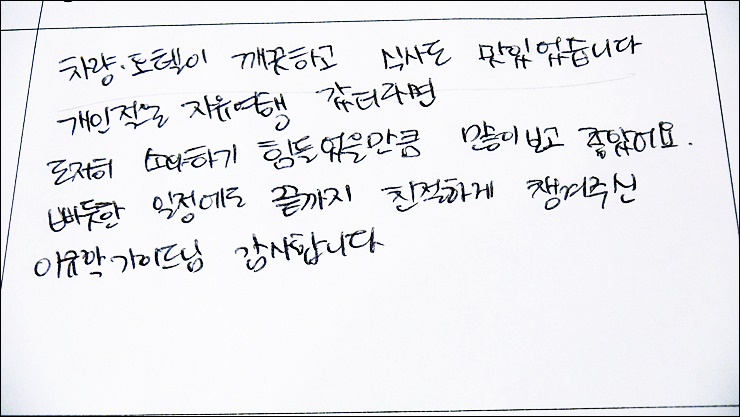 차량·호텔이 깨끗하고 식사도 맛있었습니다
개인적으로 자유여행 갔더라면
도저히 소화하기 힘들었을만큼 많이보고 좋았어요.
빠듯한 일정에도 끝까지 친절하게 챙겨주신
가이드님 감사합니다